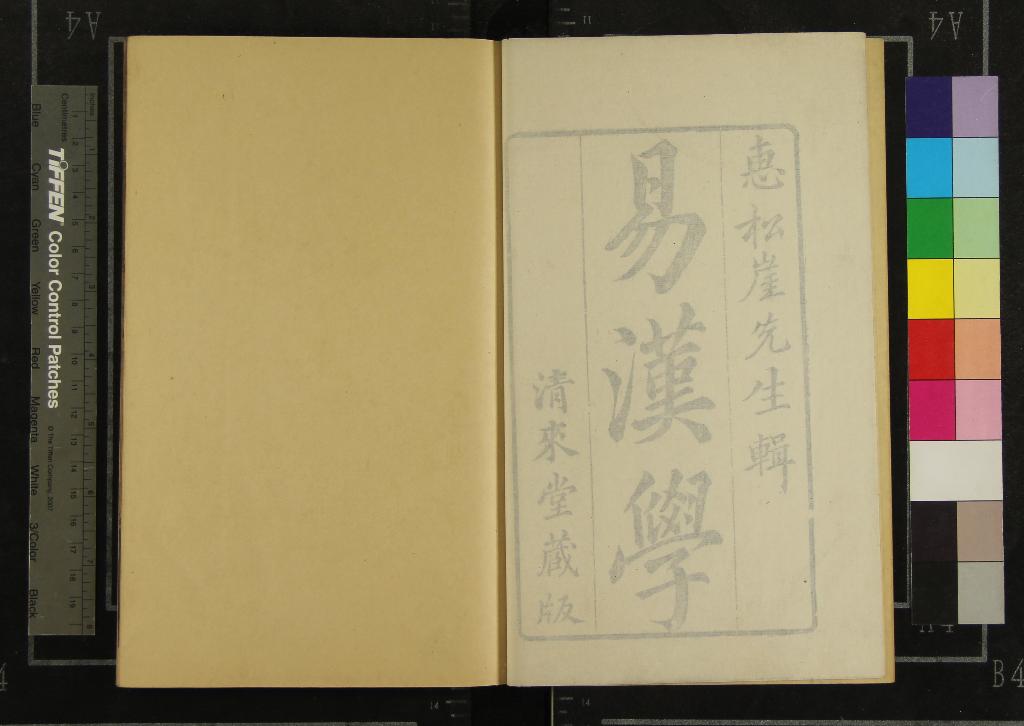 惠松崖先生輯
易漢學
清來堂藏版
A4
A4
11
11
Inches
Centimetres
TIFFEN Color Control Patches
© The Tiffen Company, 2007
Blue
Cyan
Green
Yellow
Red
Magenta
White
3/Color
Black
A4
B4
4
14
14